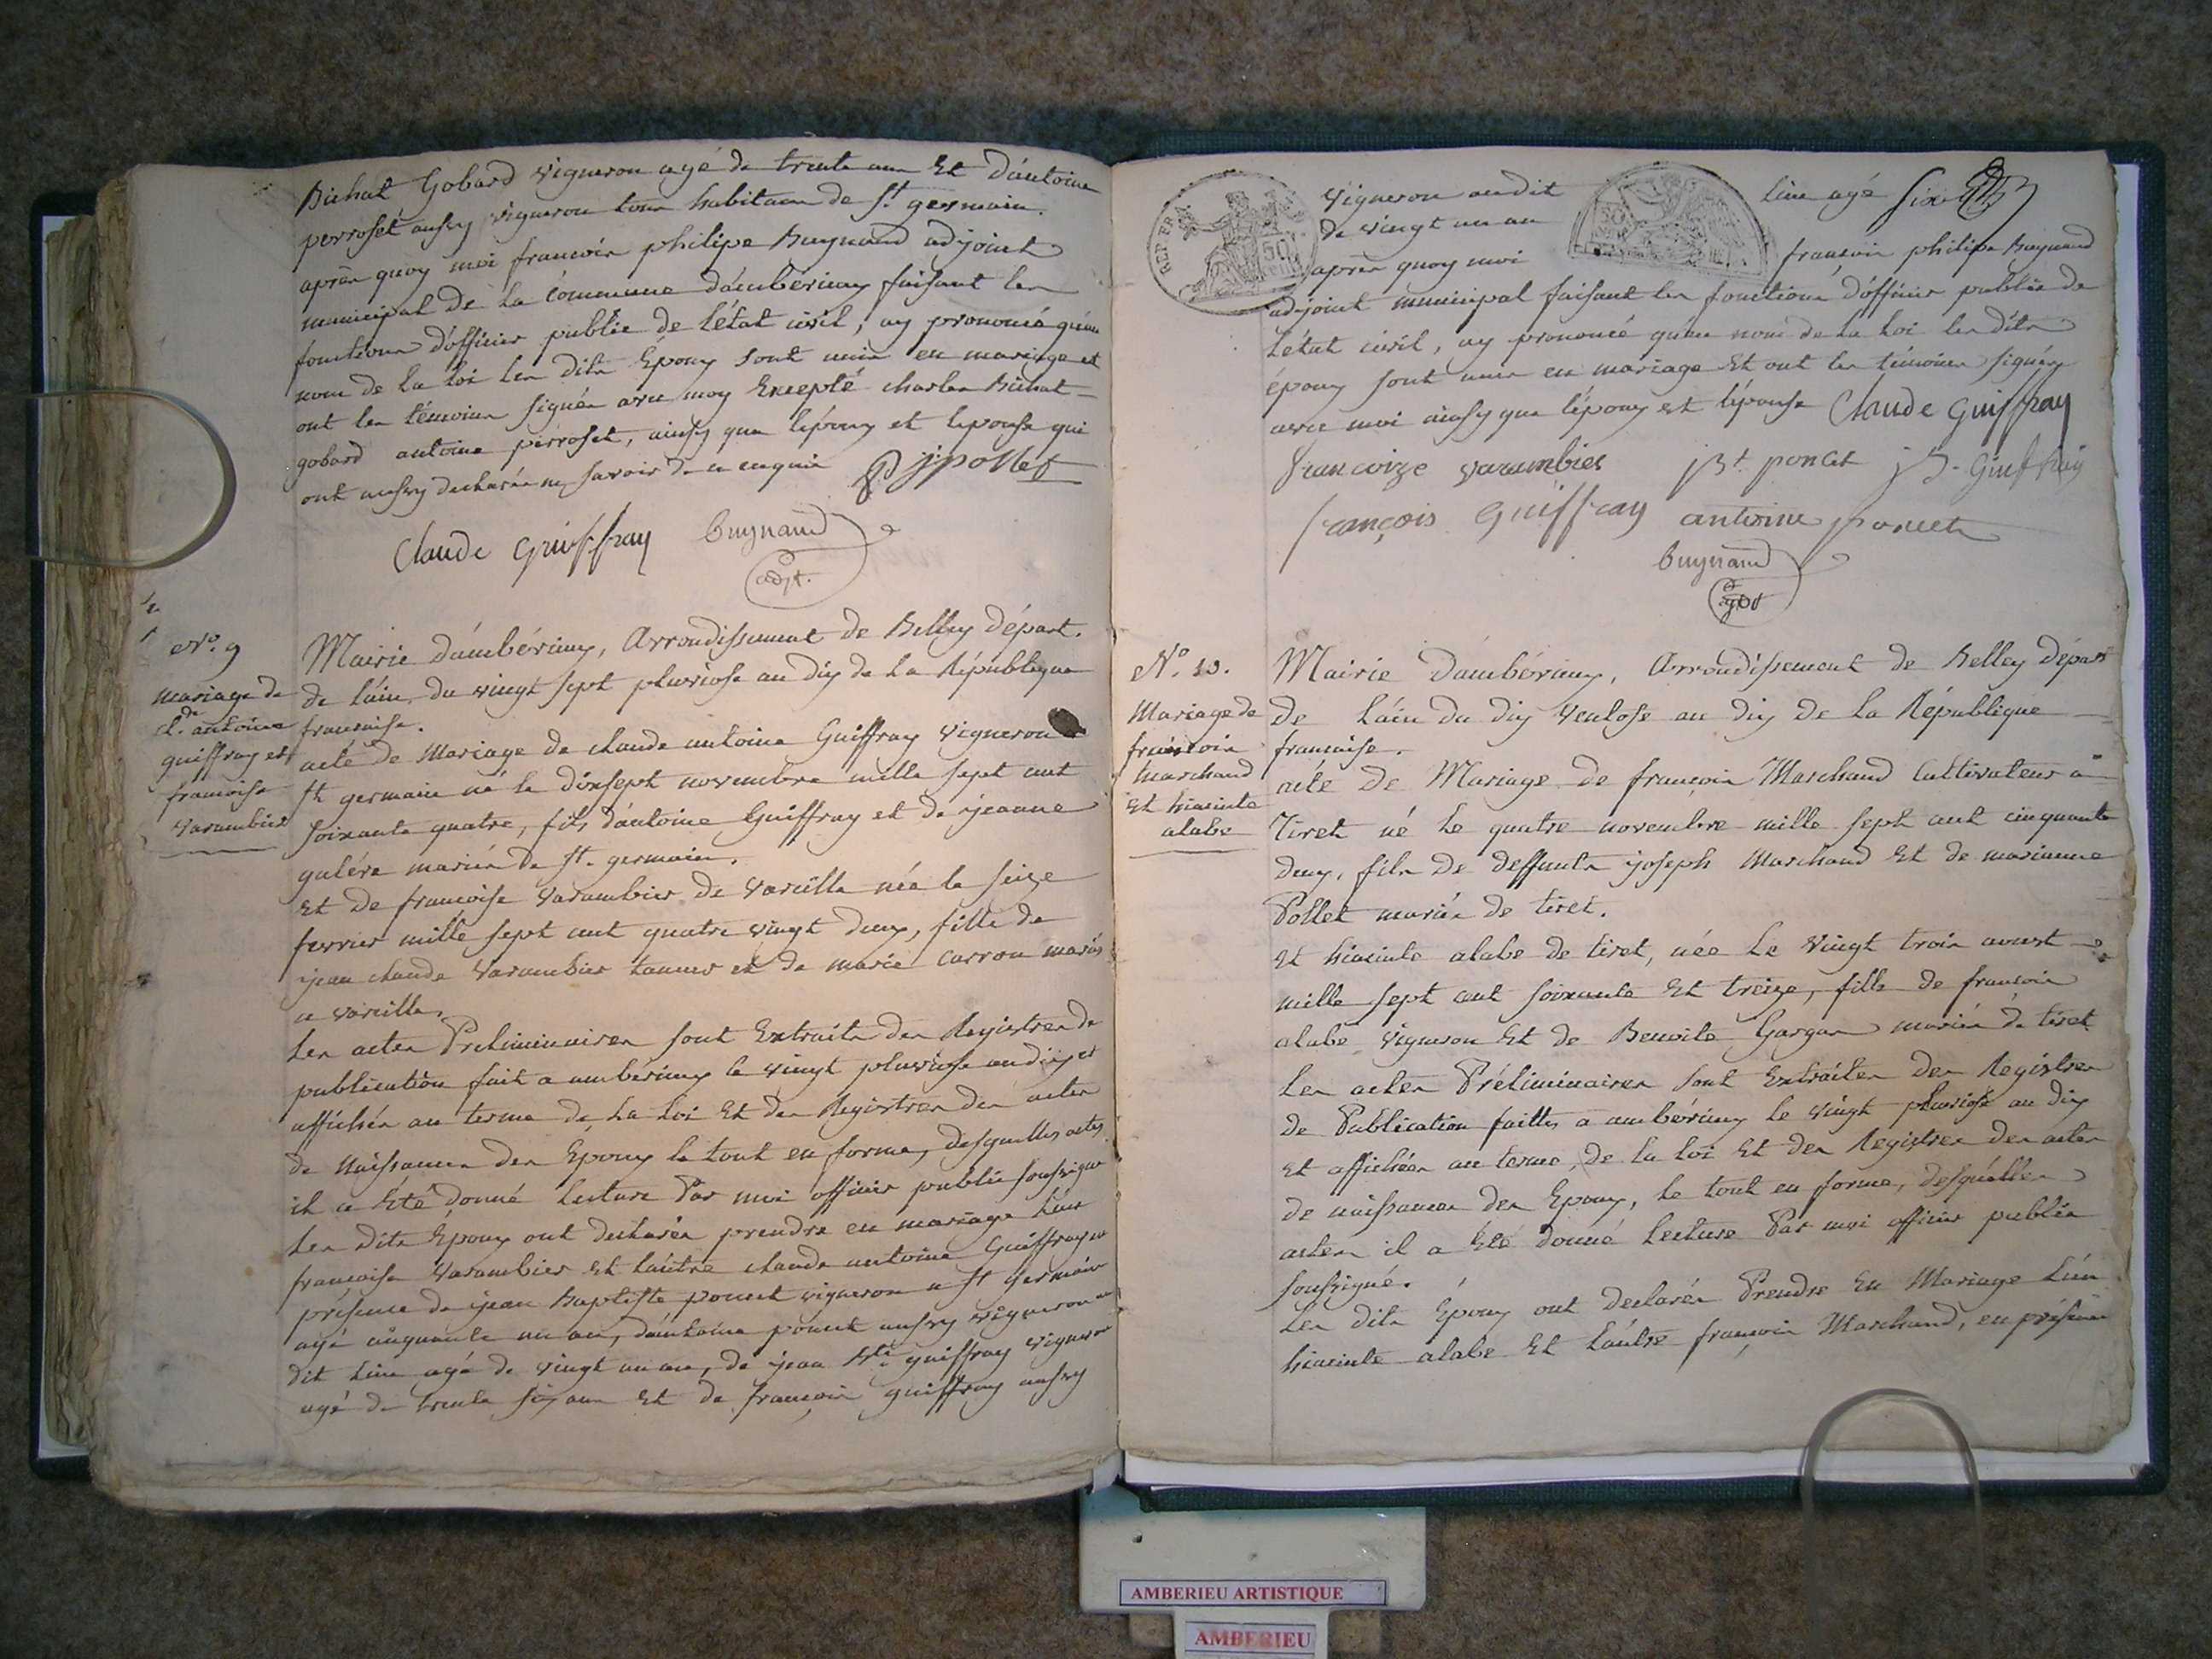 Bichat Gobard vigneron agé de trente ans Et d'antoine
perroset aussy vigneron tous habitans de St germain.
après quoy moi francois philipe Buynand adjoint
municipal de la Commune d'ambérieux faisant les
fonctions d'officier public de l'état civil, ay prononcé qu'au
nom de la loi les dits Epoux sont unis en mariage et
ont les témoins signés avec moy Excepté charles Bichat
gobard antoine perroset, ainsy que l'époux et l'epouse qui
ont aussy declarés ne savoir de ce enquis jpollet
Claude Guiffray Buynand
adjt.
No. 9
mariage de
cl.de antoine
guiffray et
francoise
varambier
Mairie d'ambérieux, Arrondissement de Belley départ.
de l'ain du vingt sept pluviose an dix de la République
francaise.
acte de Mariage de claude antoine Guiffray vigneron
St germain né le dixsept novembre mille sept cent
soixante quatre, fils d'antoine Guiffray et de jeanne
galére mariés de St. germain.
Et de francoise varambier de vareille née le seize
fevrier mille sept cent quatre vingt deux, fille de
jean claude varambier tanneur et de marie carron mariés
a vareille.
Les actes Preliminaires sont Extraits des Registres de
publication fait a ambérieux le vingt pluviose an dix et
affichés au terme de la loi Et des Registres des actes
de Naissance des Epoux le tout en forme, desquelles actes
il a Eté donné lecture Par moi officier public soussigné
Les dits Epoux ont declarés prendre en mariage l'une
francoise varambier Et l'autre claude antoine Guiffray en
présence de jean Baptiste poncet vigneron a St germain
agé cinquante un an, d'antoine poncet aussy vigneron au
dit lieu agé de vingt un an, de jean Bte guiffray vigneron
agé de trente six ans Et de francois guiffray aussy
REP FRA
50
cent
vigneron au dit lieu agé six
de vingt un an
après quoy moi francois philipe Buynand
adjoint municipal faisant les fonctions d'officier public de
l'état civil, ay prononcé qu'au nom de la loi les dits
époux sont unis en mariage Et ont les témoins signés
avec moi ainsy que l'époux et l'épouse Claude Guiffray
francoize varambier jBt poncet jB. Guiffray
françois Guiffray antoine poncet
Buynand
No. 10.
Mariage de
francois
marchand
Et hiacinte
alabe
Mairie d'ambérieux, Arrondissement de Belley départ
de l'ain du dix ventose an dix de la République
francaise.
acte de Mariage de françois Marchand Cultivateur a
Tiret né le quatre novembre mille sept cent cinquante
deux, fils de deffunts joseph Marchand Et de marianne
Pollet mariés de tiret.
Et hiacinte alabe de tiret, née le vingt trois aoust
mille sept cent soixante Et treize, fille de francois
alabe vigneron Et de Benoite Gargan mariés de tiret
Les actes Préliminaires sont Extraites des Registres
de Publication faittes a ambérieux le vingt pluviose an dix
Et affichées au terme de la loi Et des Registres des actes
de naissances des Epoux, le tout en forme, desquélles
actes il a Eté donné lecture Par moi officier public
soussigné.
Les dits Epoux ont declarés Prendre En Mariage L'une
hiacinte alabe Et l'autre françois Marchand, en présence
AMBERIEU ARTISTIQUE
AMBERIEU